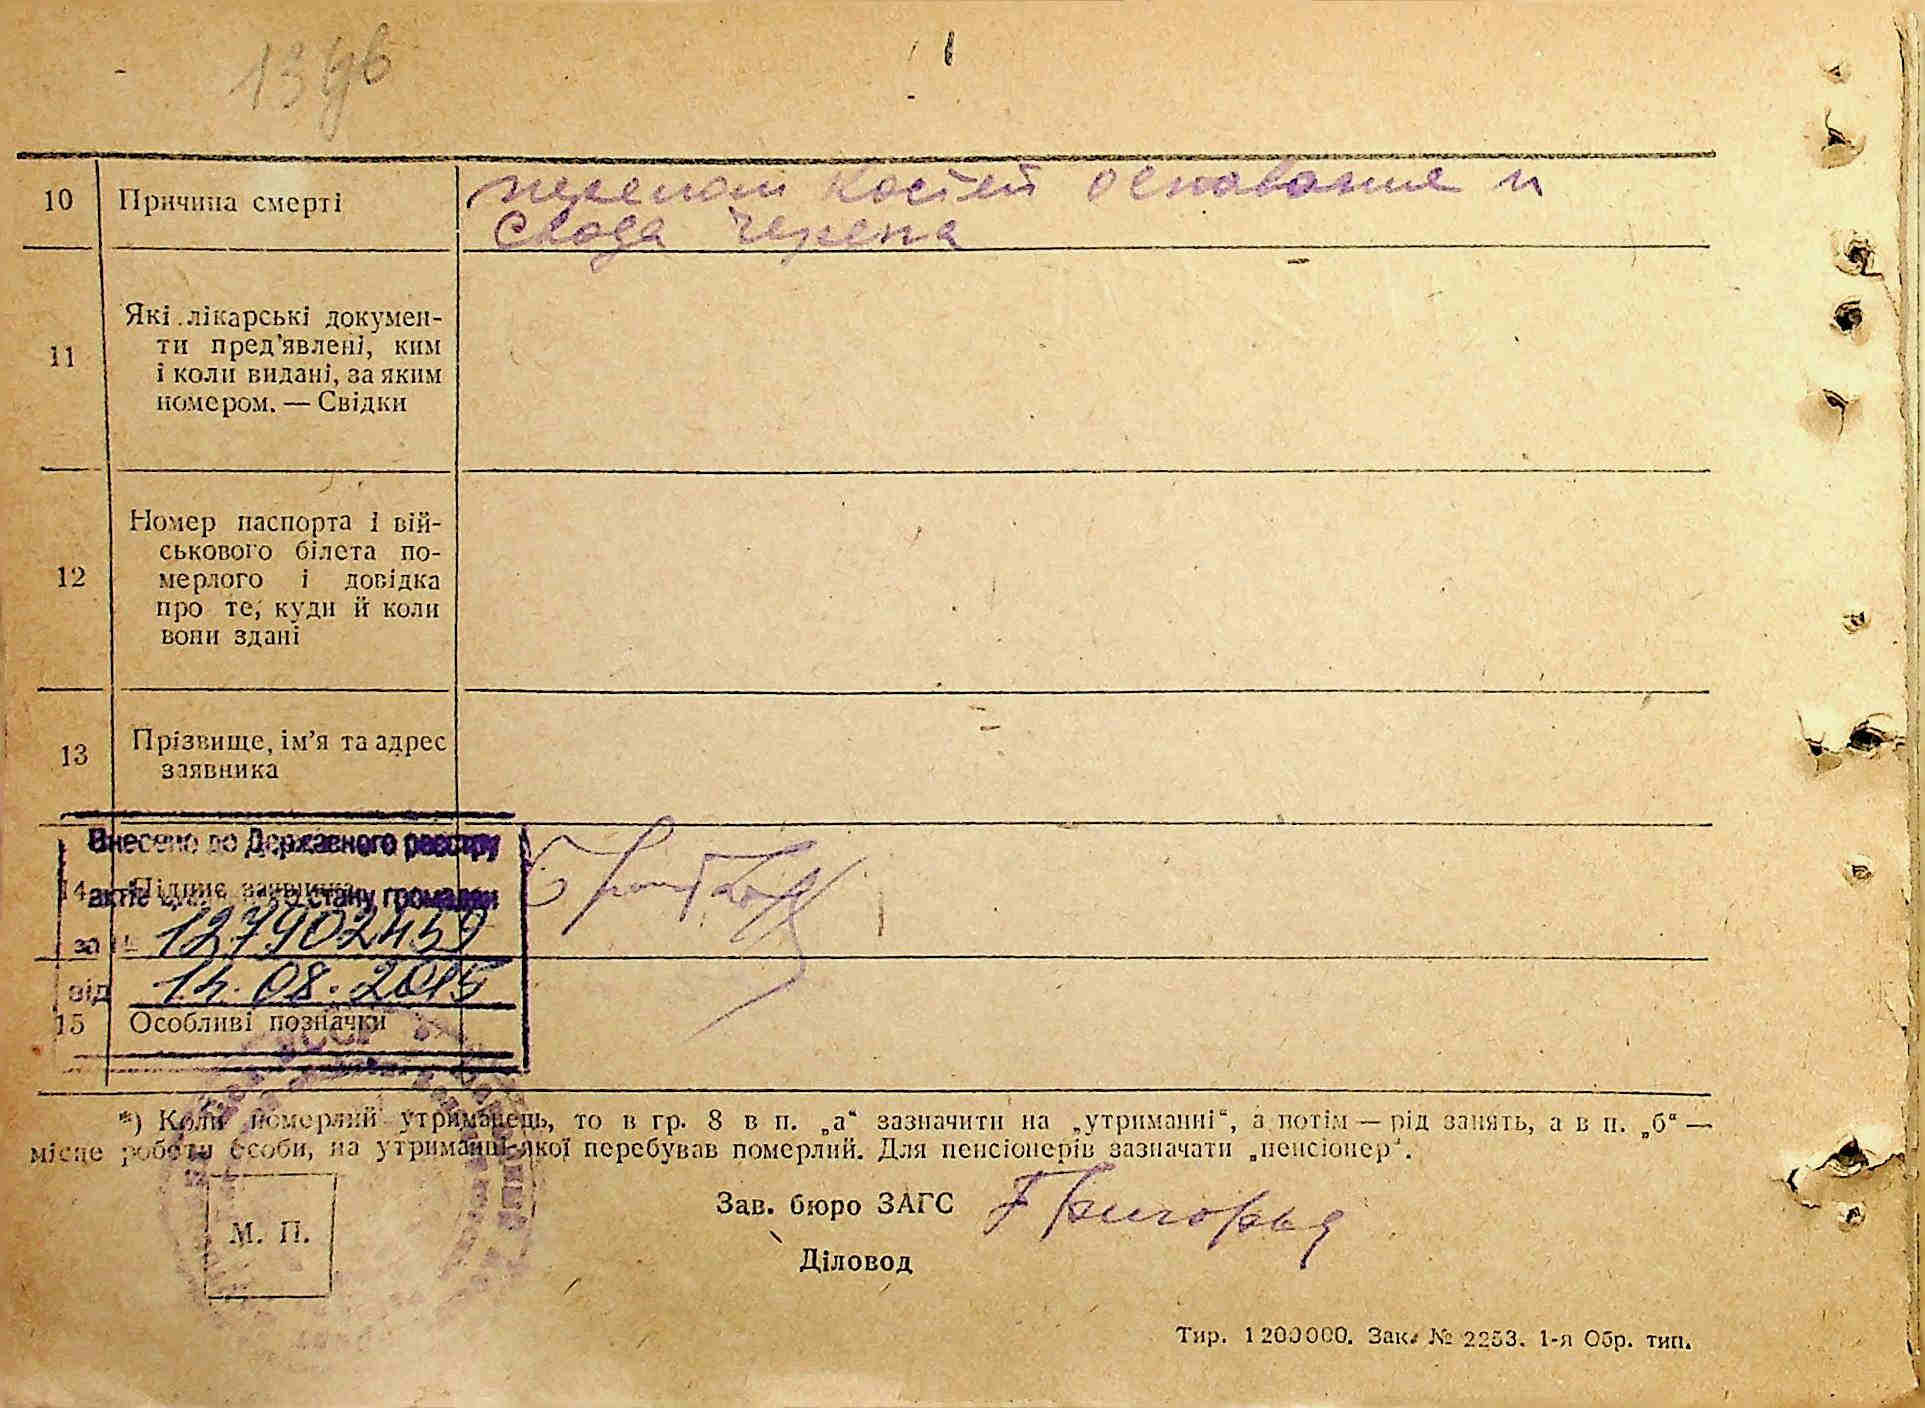 10 Причина смерті перелом костей основание и
свода черепа
11 Які лікарські докумен-
ти пред'явлені, ким
і коли видані, за яким
номером. — Свідки
12 Номер паспорта і вій-
ськового білета по-
мерлого і довідка
про те, куди й коли
вони здані
13 Прізвище, ім'я та адрес
заявника
Внесено до Державного реєстру
14 Підпис заявника
актів стану громадян
за № 127902459
від 14.08.2015
15 Особливі позначки
*) Коли померлий утриманець, то в гр. 8 в п. „а“ зазначити на „утриманні“, а потім — рід занять, а в п. „б“ —
місце роботи особи, на утриманні якої перебував померлий. Для пенсіонерів зазначати „пенсіонер“.
Зав. бюро ЗАГС
М. П.
Діловод
Тир. 1200000. Зак. № 2253. 1-я Обр. тип.